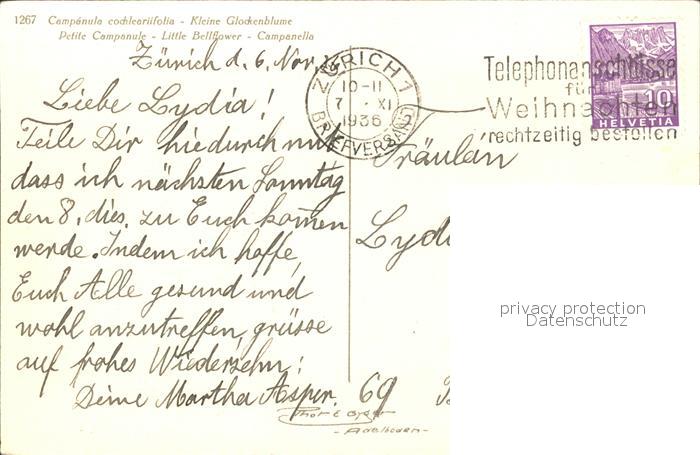 1267 Campánula cochleariifolia - Kleine Glockenblume
Petite Campanule - Little Bellflower - Campanella
Zürich d. 6. Nov. 36
Liebe Lydia!
Teile Dir hiedurch mit
dass ich nächsten Sonntag
den 8. dies. zu Euch komen
werde. Indem ich hoffe,
Euch Alle gesund und
wohl anzutreffen, grüsse
auf frohes Wiedersehn!
Deine Martha Asper.
ZÜRICH 1
10-11
7. XI
1936
BRIEFVERSAND
Telephonanschlüsse
für
Weihnachten
rechtzeitig bestellen
10
HELVETIA
Fräulän
Lydi
69
Phot E Gyger
- Adelboden -
privacy protection
Datenschutz